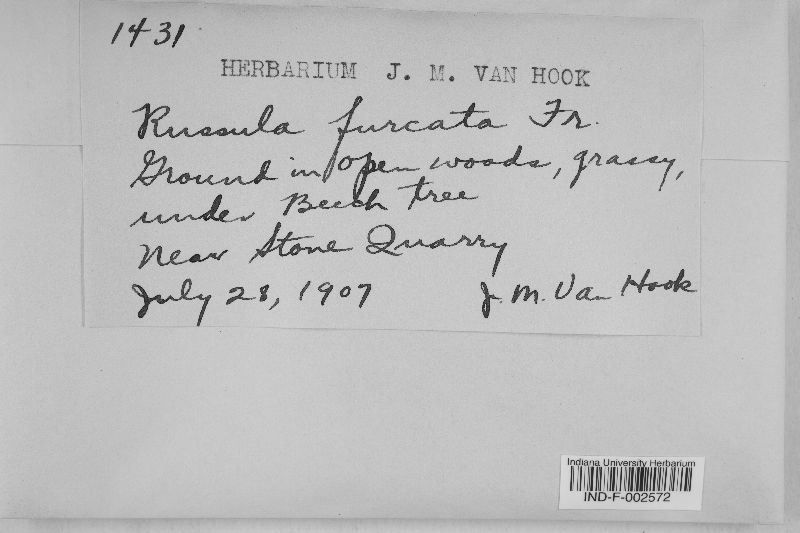 1431
HERBARIUM J. M. VAN HOOK
Russula furcata Fr.
Ground in open woods, grassy,
under Beech tree
Near Stone Quarry
July 28, 1907 J. M. Van Hook
Indiana University Herbarium
IND-F-002572